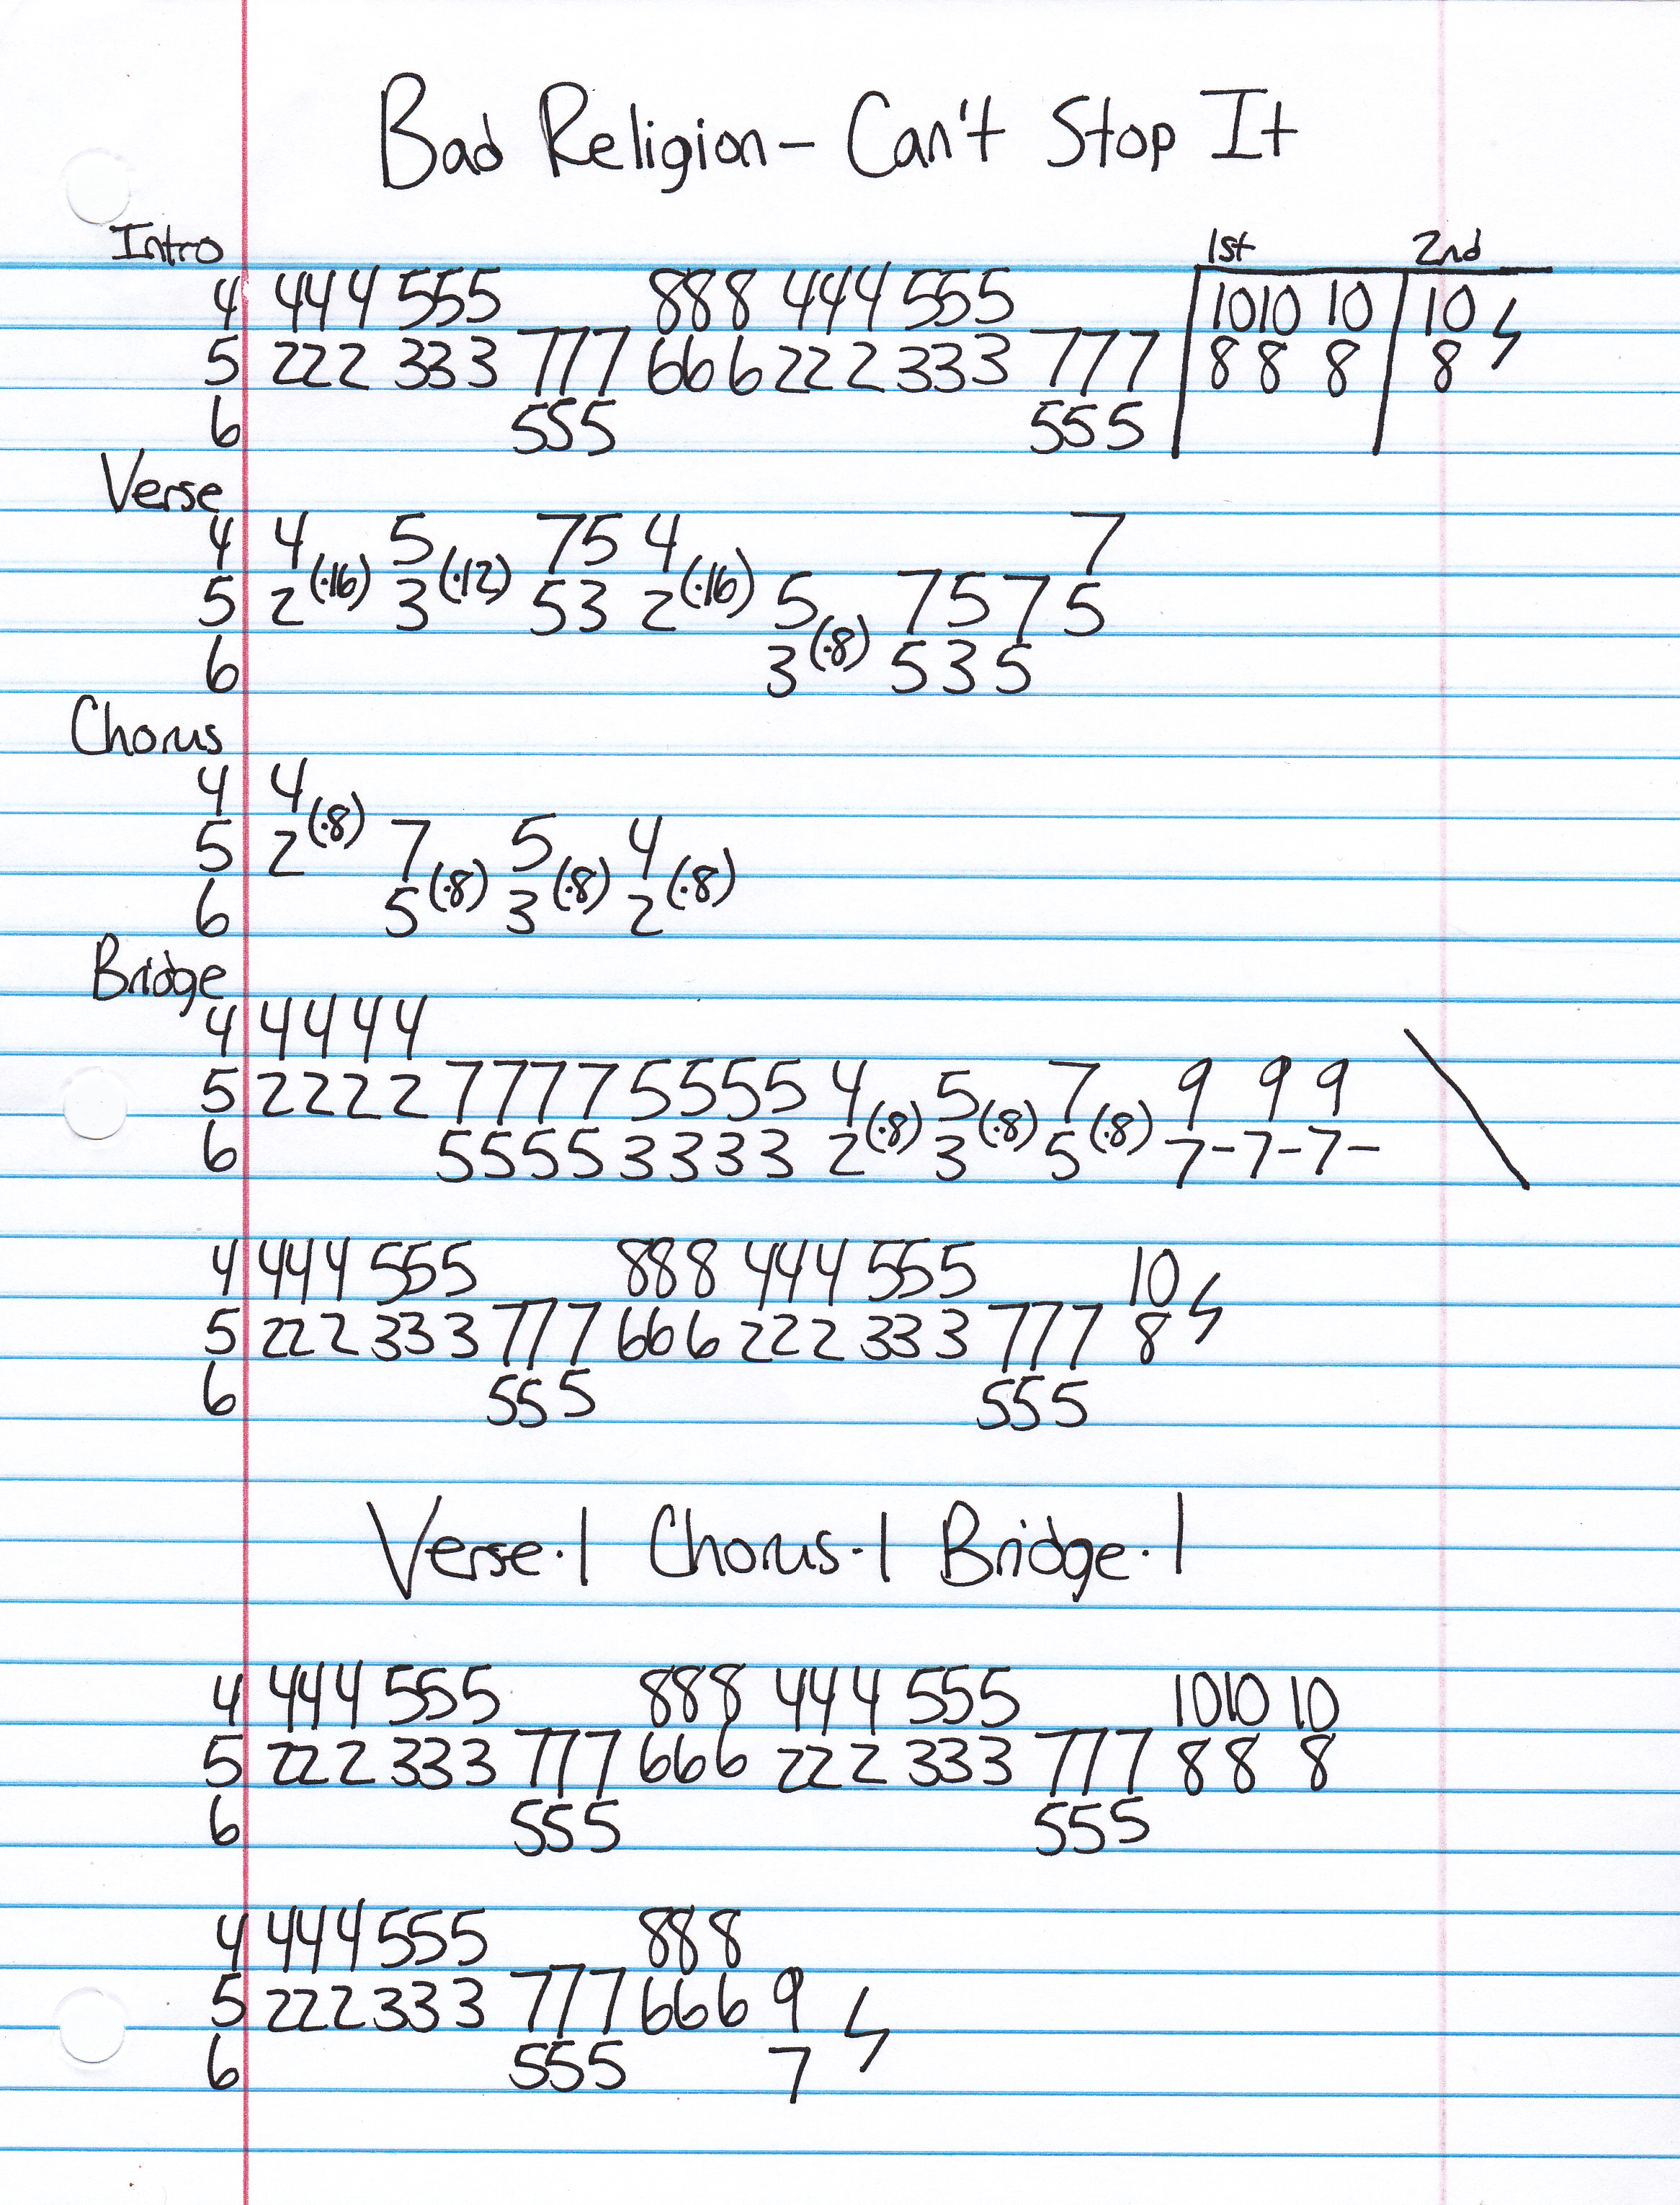 Bad Religion - Can't Stop It
Intro 1st 2nd
4 444 555 888 444 555 10 10 10 10
5 222 333 777 666 222 333 777 8 8 8 8
6 555 555
Verse
4 4 5 75 4 7
5 2 (·16) 3 (·12) 53 2 (·16) 5 7 5 7 5
6 3 (·8) 5 3 5
Chorus
4 4
5 2 (·8) 7 5 4
6 5 (·8) 3 (·8) 2 (·8)
Bridge
4 4444
5 2222 7777 5555 4 5 7 9 9 9
6 5555 3333 2 (·8) 3 (·8) 5 (·8) 7- 7- 7-
4 444 555 888 444 555 10
5 222 333 777 666 222 333 777 8
6 555 555
Verse·1 Chorus·1 Bridge·1
4 444 555 888 444 555 10 10 10
5 222 333 777 666 222 333 777 8 8 8
6 555 555
4 444 555 888
5 222 333 777 666 9
6 555 7